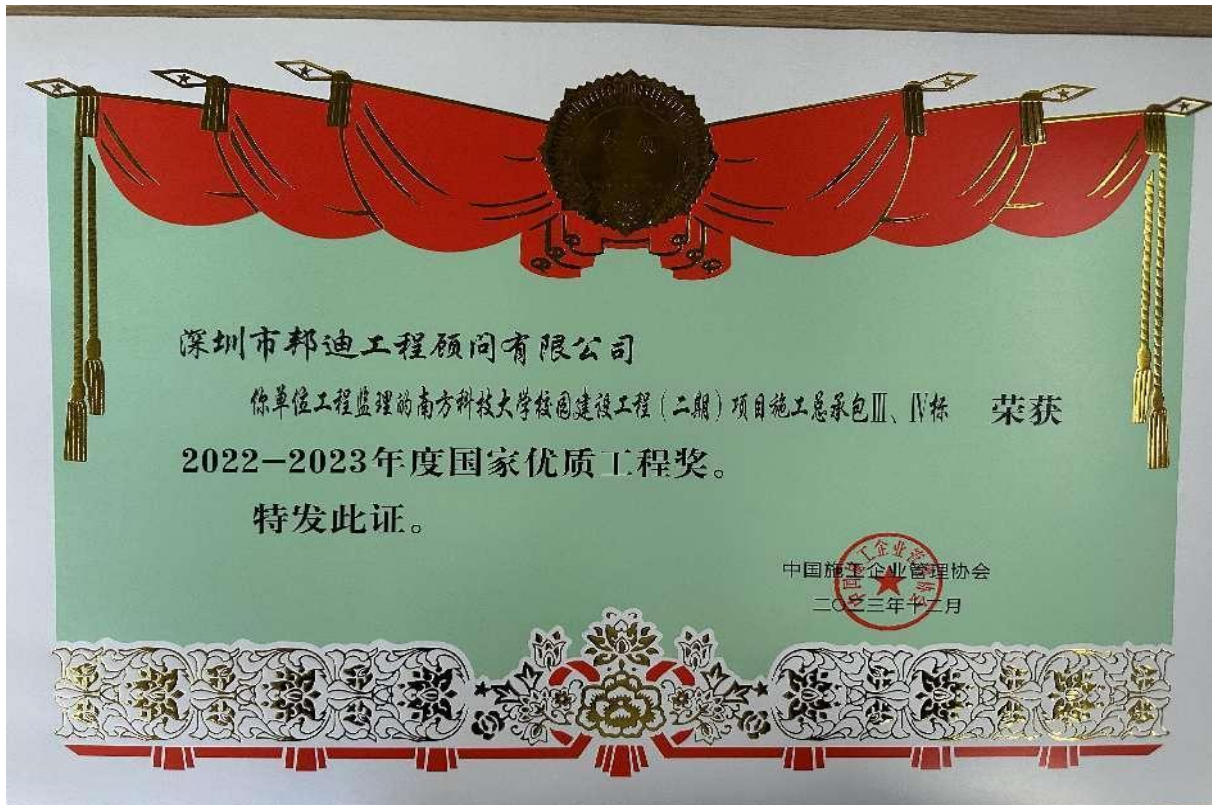 深圳市邦迪工程顾问有限公司
你单位工程监理的南方科技大学校园建设工程(二期)项目施工总承包Ⅲ、Ⅳ标 荣获
2022-2023年度国家优质工程奖。
特发此证。
中国施工企业管理协会
二〇二三年十二月
中国施工企业管理协会